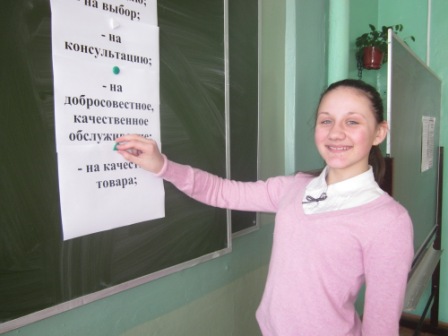 - на выбор;
- на
консультацию;
- на
добросовестное,
качественное
обслуживание;
- на качество
товара;